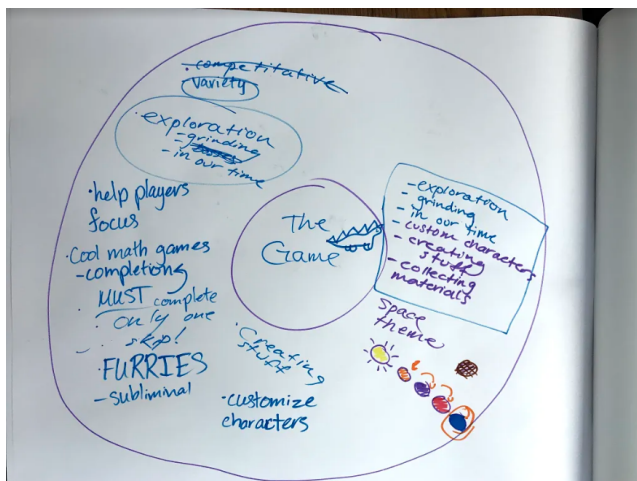 · competitative
variety
· exploration
- grinding
- in our time
· help players
focus
· Cool math games
- completions
MUST complete
· only one
skip!
· FURRIES
- subliminal
The
Game
- exploration
- grinding
- in our time
- custom characters
- creating
stuff
- collecting
materials
Space
theme
· Creating
stuff
· customize
characters